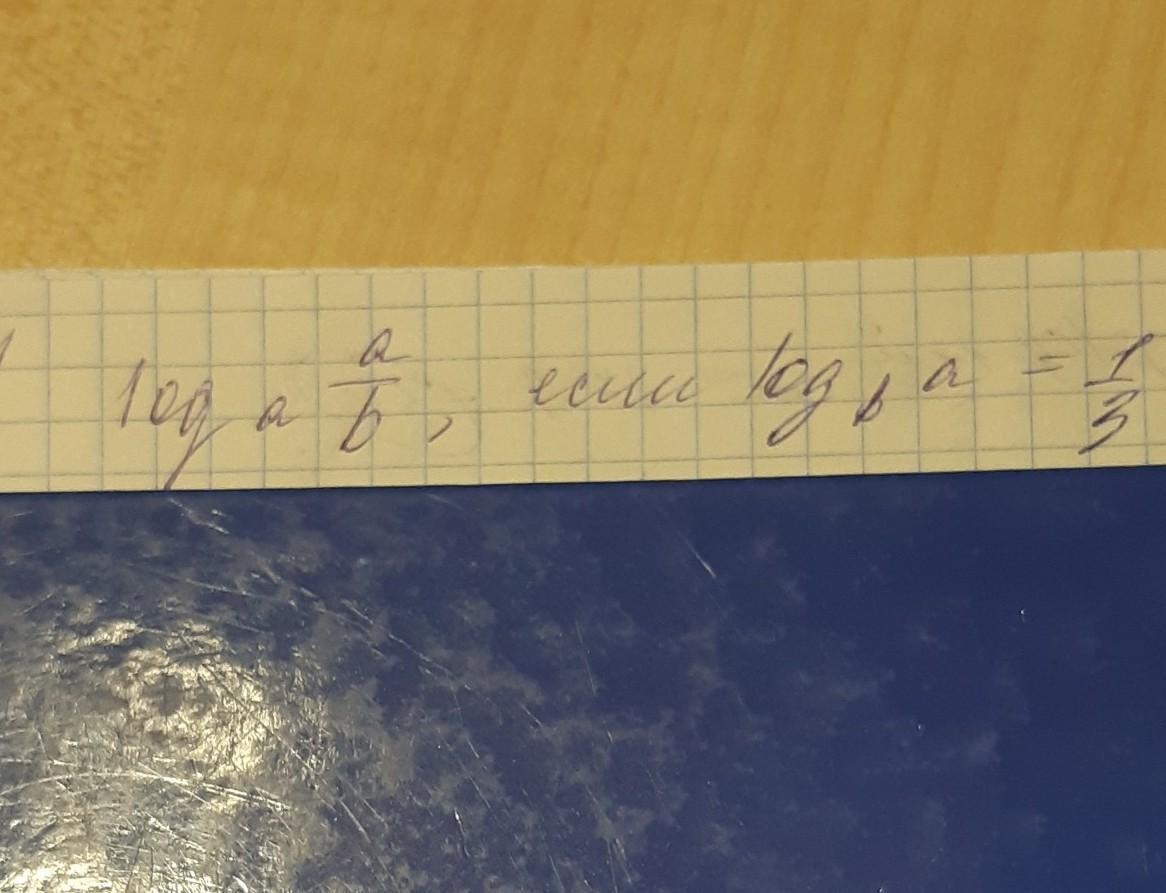 log_a a/b, если log_b a = 1/3